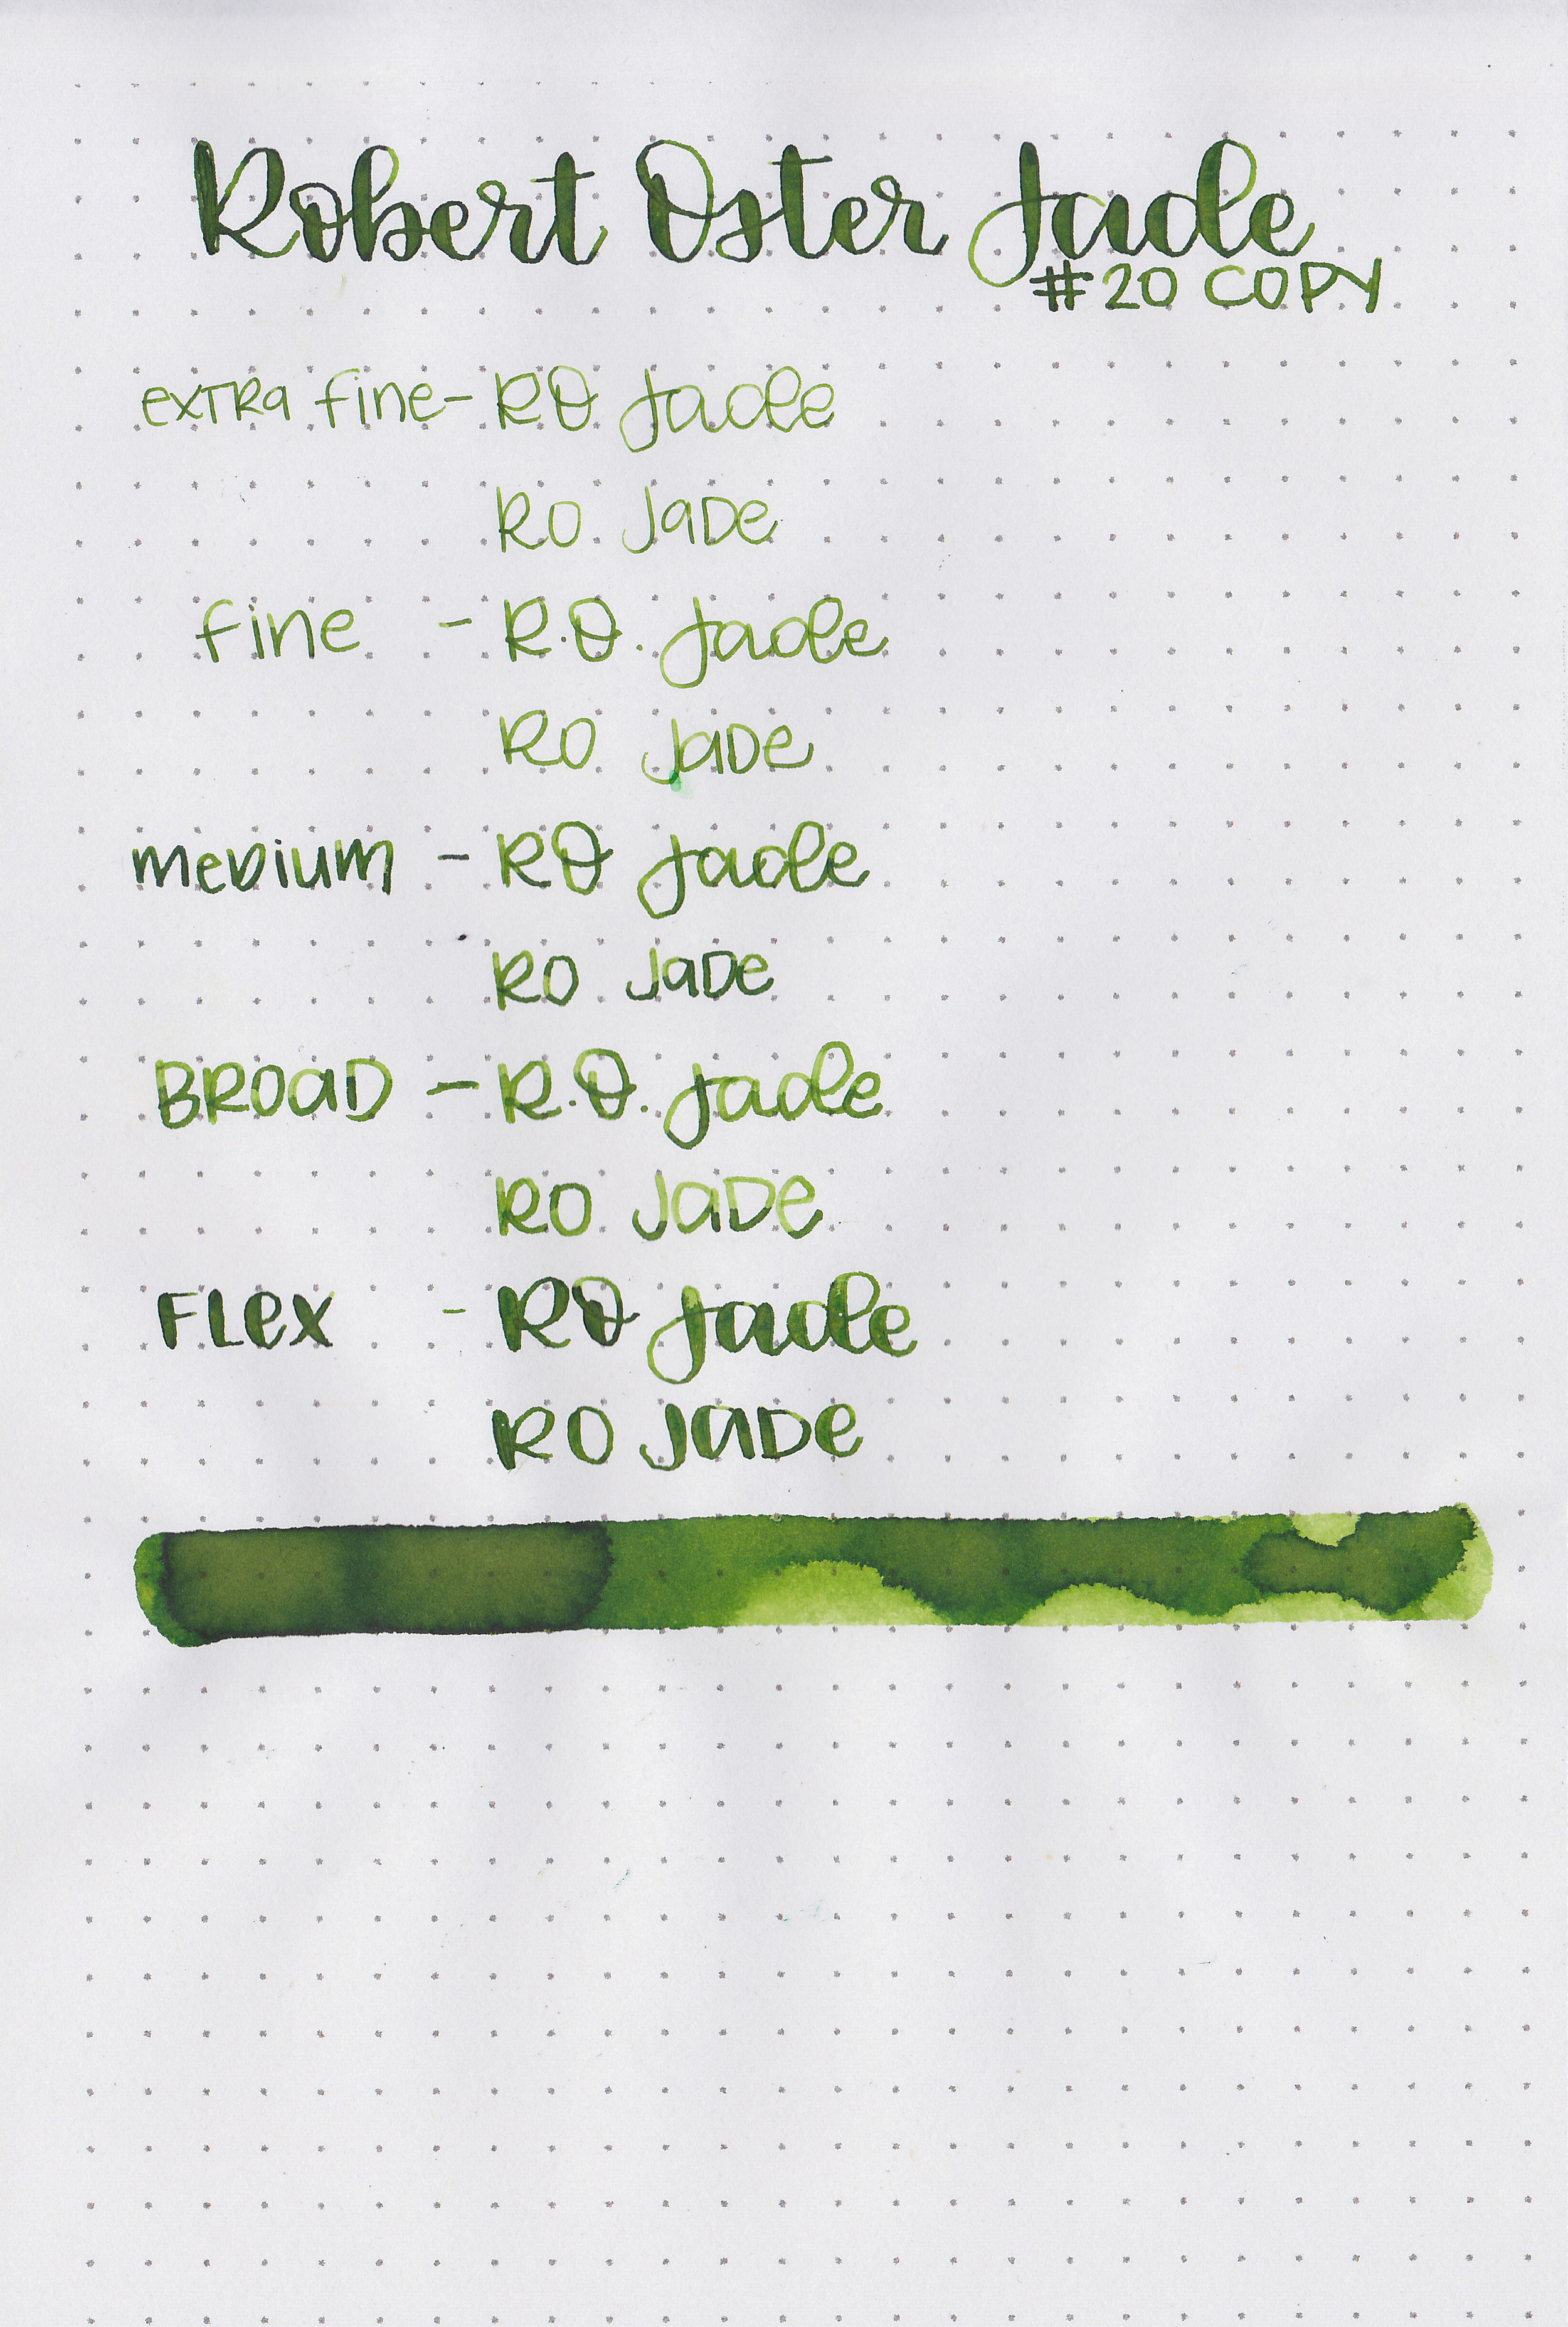 Robert Oster Jade
#20 COPY
extra fine - RO Jade
RO Jade
fine - R.O. Jade
RO Jade
medium - RO Jade
RO Jade
BROAD - R.O. Jade
RO JADE
FLEX - RO Jade
RO JADE